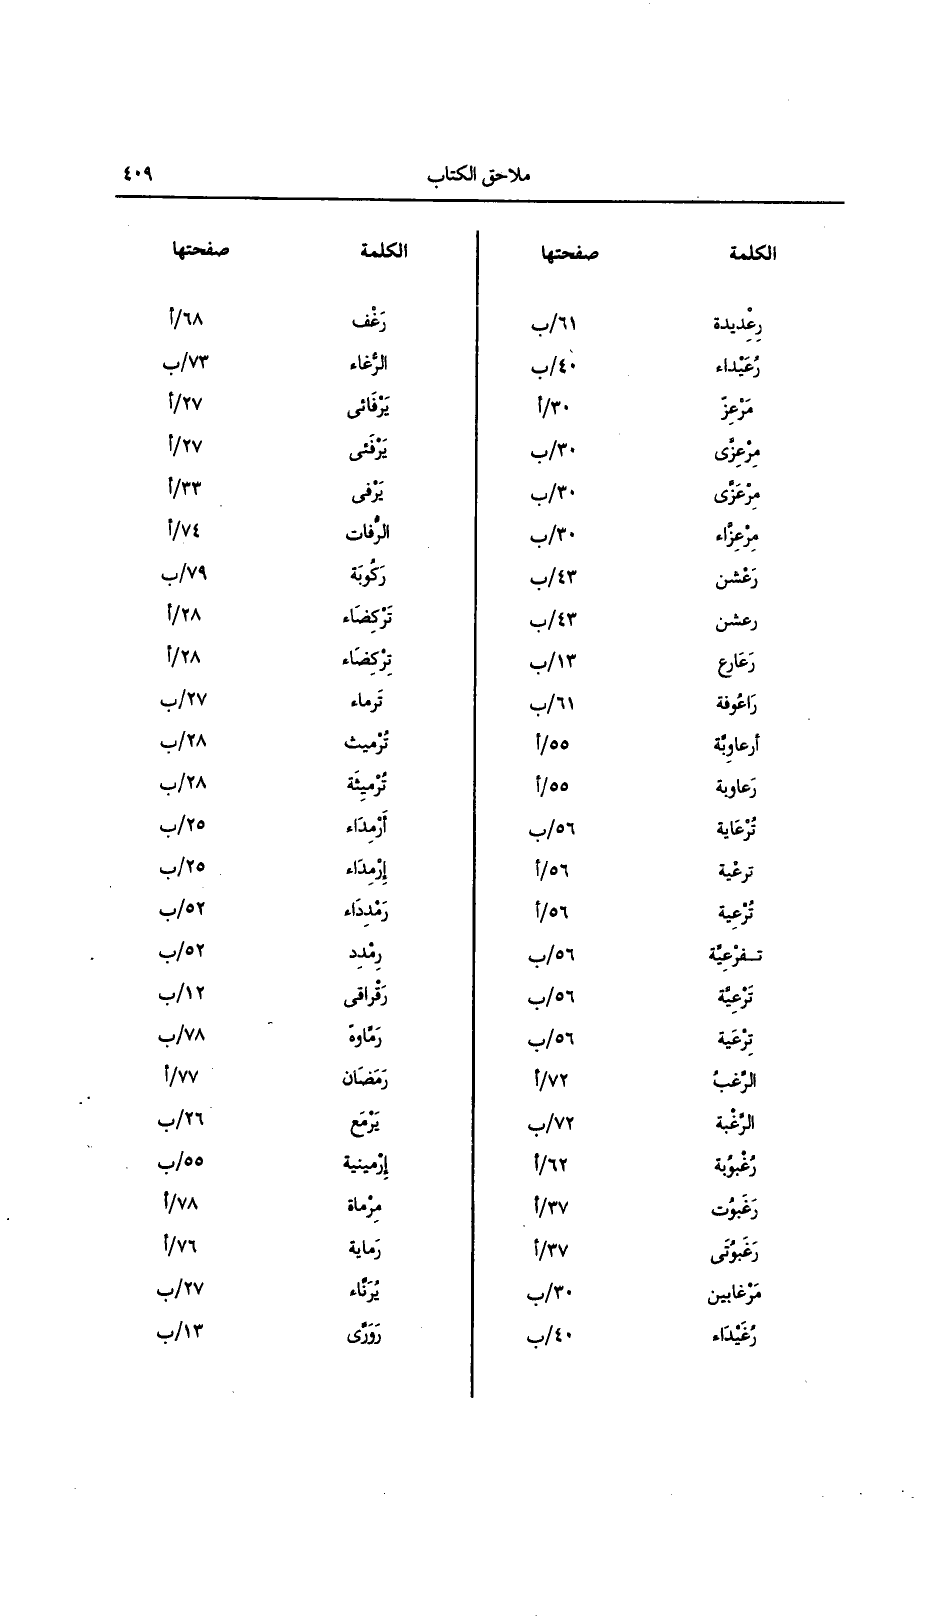 ملاحق الكتاب ٤٠٩
الكلمة صفحتها
رِعْدِيدة ٦١/ب
رُعَيْداء ٤٠/ب
مَرْعِزّ ٣٠/أ
مِرْعِزَّى ٣٠/ب
مِرْعَزَّى ٣٠/ب
مِرْعِزَّاء ٣٠/ب
رَعْشن ٤٣/ب
رعشن ٤٣/ب
رَعَارع ١٣/ب
رَاعُوفة ٦١/ب
أرعاوِيَّة ٥٥/أ
رَعاوية ٥٥/أ
تُرْعَاية ٥٦/ب
ترعْية ٥٦/أ
تُرْعِية ٥٦/أ
تــفرْعِيَّة ٥٦/ب
تَرْعِيَّة ٥٦/ب
تِرْعَية ٥٦/ب
الرَّغبُ ٧٢/أ
الرَّغْبة ٧٢/ب
رُغْبوُبة ٦٢/أ
رَغَبوُت ٣٧/أ
رَغَبوُتَى ٣٧/أ
مَرْغابين ٣٠/ب
رُغَيْدَاء ٤٠/ب
الكلمة صفحتها
رَغْف ٦٨/أ
الرُّغاء ٧٣/ب
يَرْفَائى ٢٧/أ
يَرْفَئى ٢٧/أ
يَرْفى ٣٣/أ
الرُّفات ٧٤/أ
رَكُوبَة ٧٩/ب
تَرْكِضَاء ٢٨/أ
تِرْكِضَاء ٢٨/أ
تَرماء ٢٧/ب
تُرْميث ٢٨/ب
تُرْمِيثَة ٢٨/ب
أَرْمِدَاء ٢٥/ب
إرْمِدَاء ٢٥/ب
رَمْدِدَاء ٥٢/ب
رِمْدِد ٥٢/ب
رَقْراقى ١٢/ب
رَمَّاوة ٧٨/ب
رَمَضَان ٧٧/أ
يَرْمَع ٢٦/ب
إرْمينية ٥٥/ب
مِرْماة ٧٨/أ
رَماية ٧٦/أ
يُرَنَّاء ٢٧/ب
رَوَرَّى ١٣/ب